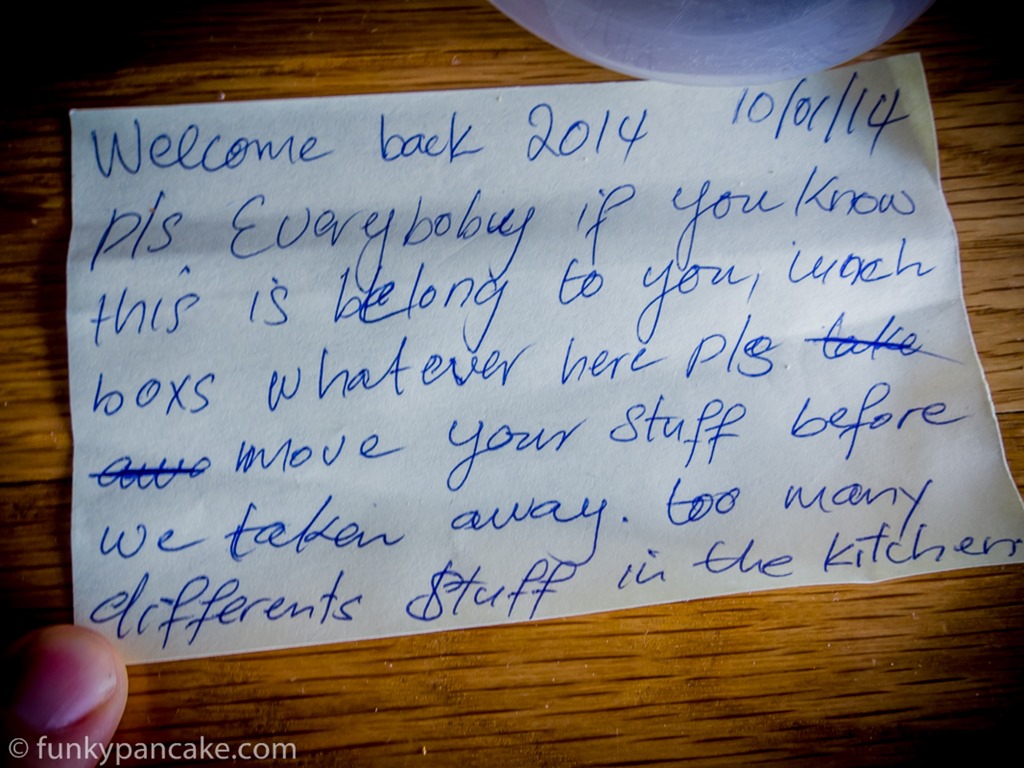 Welcome back 2014 10/01/14
pls Everybobuy if you know
this is belong to you,
boxs whatever here pls take
move your stuff before
we taken away. too many
differents stuff in the kitchen
© funkypancake.com